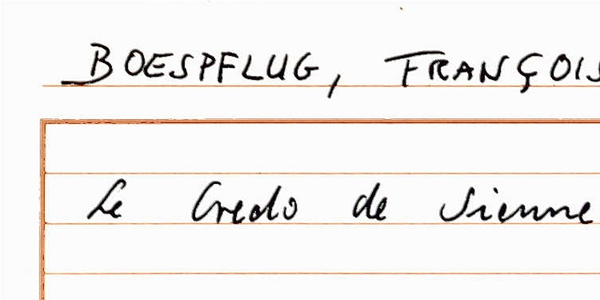 BOESPFLUG, FRANÇOIS
Le Credo de Sienne